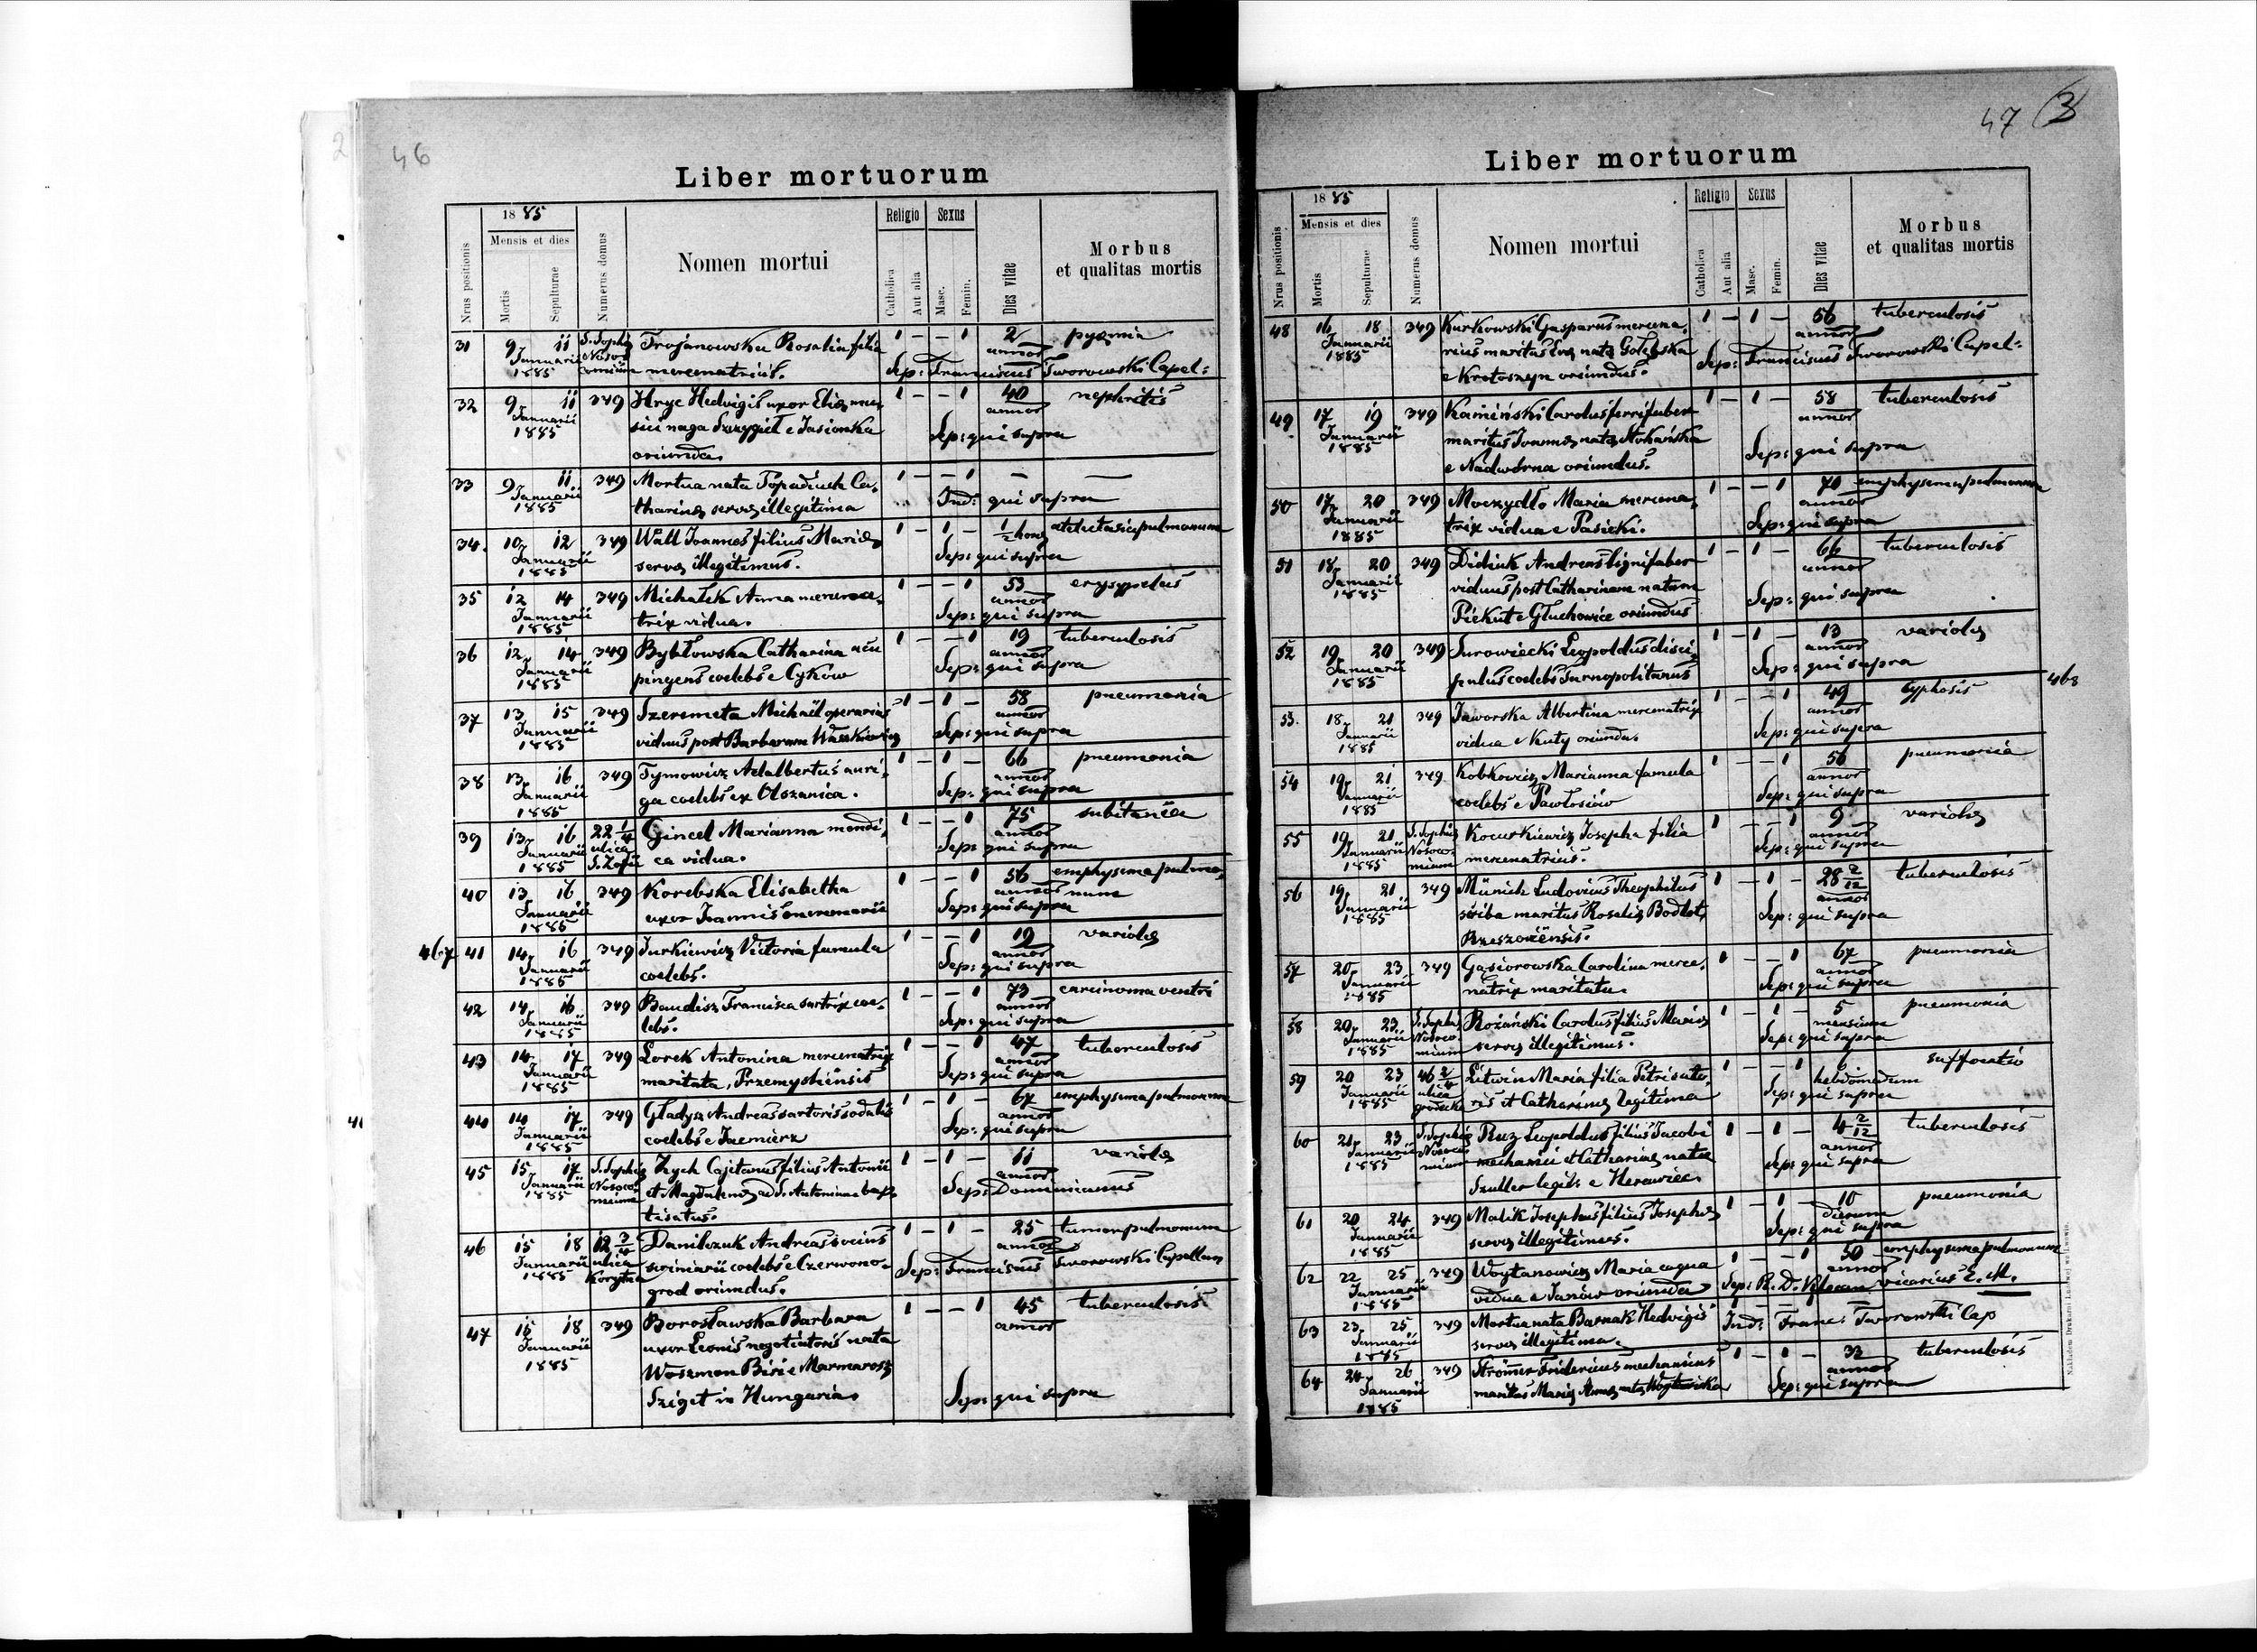 46
Liber mortuorum
18 85
Mensis et dies
Nrus positionis
Mortis
Sepulturae
Numerus domus
Nomen mortui
Religio
Catholica
Aut alia
Sexus
Masc.
Femin.
Dies vitae
Morbus
et qualitas mortis
31 9 11 S. Sophiæ Trojanowska Rosalia filia 1 – – 1 2 pyæmia
Januarii Nosoco annor
1885 comium mercenatricis. Sep: Franciscus Tworowski Capel:
32 9 11 349 Hryc Hedvigis uxor Eliæ 1 – – 1 40 nephritis
Januarii annor
1885 e Jasionka Sep: qui supra
oriunda.
33 9 11 349 Mortua nata Popadiuch Ca, 1 – – 1 – –
Januarii tharinæ servæ illegitima Ind: qui supra
1885
34. 10 12 349 Wall Joannes filius Mariæ 1 – 1 – ½ horæ atelectasis pulmonum
Januarii servæ illegitimus. Sep: qui supra
1885
35 12 14 349 Michałek Anna mercena, 1 – – 1 53 erysypelus
Januarii trix vidua. annor
1885 Sep: qui supra
36 12 14 349 Bybłowska Catharina acu 1 – – 1 19 tuberculosis
Januarii pingens coelebs e Cyków annor
1885 Sep: qui supra
37 13 15 349 Szeremeta Michaël operarius 1 – 1 – 58 pneumonia
Januarii viduus post Barbaram annor
1885 Sep: qui supra
38 13 16 349 Tymowicz Adalbertus auri, 1 – 1 – 66 pneumonia
Januarii ga coelebs ex Olszanica. annor
1885 Sep: qui supra
39 13 16 22 1/4 Gincel Marianna mendi, 1 – – 1 75 subitanea
Januarii ulica ca vidua. annor
1885 S. Zofii Sep: qui supra
40 13 16 349 Korebska Elisabetha 1 – – 1 56 emphysema pulmo,
Januarii uxor Joannis mercenarii annor num
1885 Sep: qui supra
467 41 14 16 349 Jurkiewicz Victoria famula 1 – – 1 19 variolæ
Januarii coelebs. annor
1885 Sep: qui supra
42 14 16 349 Baudisz Francisca sartrix coe- 1 – – 1 73 carcinoma ventri
Januarii lebs. annor
1885 Sep: qui supra
43 14 17 349 Lorek Antonina mercenatrix 1 – – 1 47 tuberculosis
Januarii maritata, Przemysliensis annor
1885 Sep: qui supra
44 14 17 349 Gladysz Andreas sartoris sodalis 1 – 1 – 67 emphysema pulmonum
Januarii coelebs e Jaćmierz annor
1885 Sep: qui supra
45 15 17 S. Sophiæ Zych Cajetanus filius Antonii 1 – 1 – 11 variolæ
Januarii Nosoco- et Magdalenæ ad S. Antonium bap, annor
1885 mium tisatus. Sep: Dominicanus
46 15 18 12 3/4 Danilczuk Andreas socius 1 – 1 – 25 tumor pulmonum
Januarii ulica coelebs e Czerwono- annor
1885 Korytna grod oriundus. Sep: Franciscus Tworowski Capellan
47 15 18 349 Borosławska Barbara 1 – – 1 45 tuberculosis
Januarii uxor Leonis negotiatoris nata annor
1885 Woszman Biri e Marmarosz
Sziget in Hungaria. Sep: qui supra
47 3
Liber mortuorum
18 85
Mensis et dies
Nrus positionis
Mortis
Sepulturae
Numerus domus
Nomen mortui
Religio
Catholica
Aut alia
Sexus
Masc.
Femin.
Dies vitae
Morbus
et qualitas mortis
48 16 18 349 Kurkowski Gasparus mercena, 1 – 1 – 56 tuberculosis
Januarii rius maritus Evæ natæ Gołębska annor
1885 e Krotoszyn oriundus. Sep: Franciscus Tworowski Capel:
49 17 19 349 Kamiński Carolus ferrifaber 1 – 1 – 58 tuberculosis
Januarii maritus Joannæ natæ annor
1885 e Nadwórna oriundus. Sep: qui supra
50 17 20 349 Moczydło Maria mercena, 1 – – 1 70 emphysema pulmonum
Januarii trix vidua e Pasieki. annor
1885 Sep: qui supra
51 18 20 349 Didiuk Andreas lignifaber 1 – 1 – 66 tuberculosis
Januarii viduus post Catharinam natam annor
1885 Piekut e Gluchowice oriundus Sep: qui supra
52 19 20 349 Surowiecki Leopoldus disci, 1 – 1 – 13 variolæ
Januarii pulus coelebs Tarnopolitanus annor
1885 Sep: qui supra
468
53. 18 21 349 Jaworska Albertina mercenatrix 1 – – 1 49 typhosis
Januarii vidua e Kuty oriunda. annor
1885 Sep: qui supra
54 19 21 349 Kobkowicz Marianna famula 1 – – 1 56 pneumonia
Januarii coelebs e Pawłosiów annor
1885 Sep: qui supra
55 19 21 S. Sophiæ Kocurkiewicz Josepha filia 1 – – 1 9 variolæ
Januarii Nosoco- mercenatricis. annor
1885 mium Sep: qui supra
56 19 21 349 Münich Ludovicus Theophilus 1 – 1 – 28 2/12 tuberculosis
Januarii scriba maritus Rosaliæ annor
1885 Rzeszoviensis. Sep: qui supra
57 20 23 349 Gąsiorowska Carolina merce, 1 – – 1 67 pneumonia
Januarii natrix maritata. annor
1885 Sep: qui supra
58 20 23 S. Sophiæ Rożański Carolus filius Mariæ 1 – 1 – 5 pneumonia
Januarii Nosoco- servæ illegitimus. mensium
1885 mium Sep: qui supra
59 20 23 46 2/4 Litwin Maria filia Petri suto, 1 – – 1 6 suffocatio
Januarii ulica ris et Catharinæ legitima hebdomadum
1885 gródecka Sep: qui supra
60 21 23 S. Sophiæ Ruz Leopoldus filius Jacobi 1 – 1 – 4 2/12 tuberculosis
Januarii Nosoco- mechanici et Catharinæ natæ annor
1885 mium Szuller legit: e Sep: qui supra
61 20 24 349 Malik Josephus filius Josephæ 1 1 – 10 pneumonia
Januarii servæ illegitimus. dierum
1885 Sep: qui supra
62 22 25 349 Woytanowicz Maria coqua 1 – – 1 50 emphysema pulmonum
Januarii vidua e Janów oriunda annor
1885 Sep: R. D. vicarius E. M.
63 23 25 349 Mortua nata Barnak Hedvigis 1 – –
Januarii servæ illegitima. Ind: Franc: Tworowski Cap
1885
64 24 26 349 Strömer Fridericus mechanicus 1 – 1 – 33 tuberculosis
Januarii maritus Mariæ Annæ natæ annor
1885 Sep: qui supra